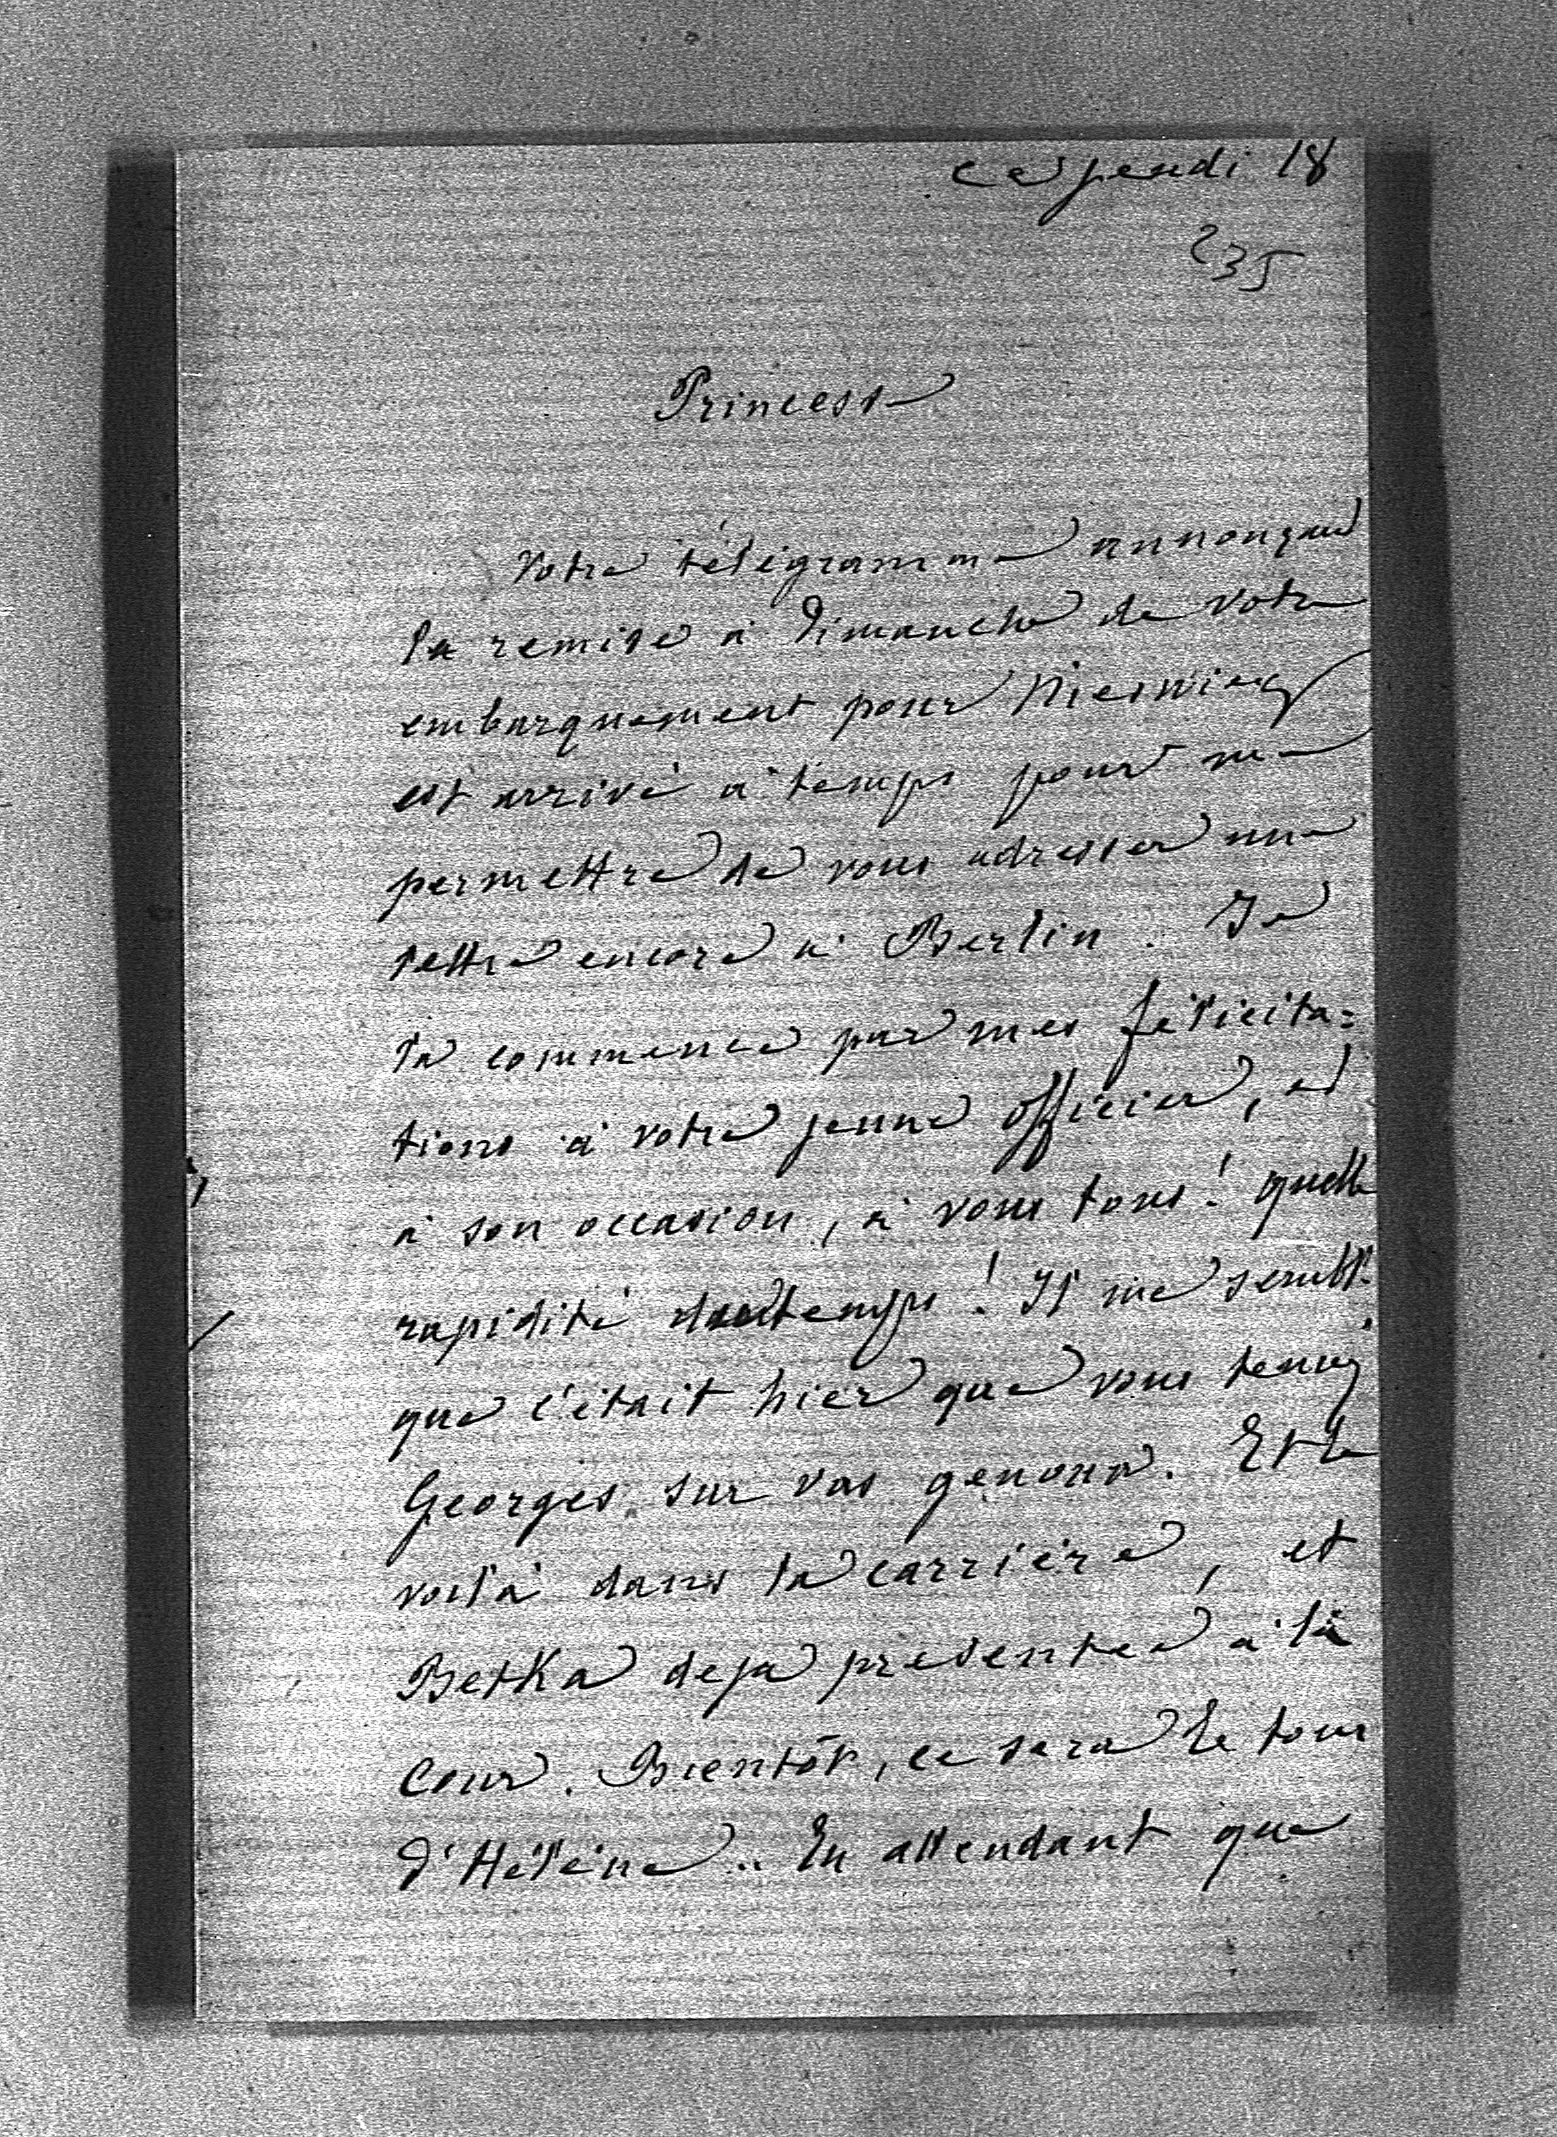 ce jeudi 18
235
Princesse
Votre télégramme annonçant
la remise à Dimanche de votre
embarquement pour Nieswiez
est arrivé à temps pour me
permettre de vous adresser une
lettre encore à Berlin. Je
la commence par mes félicita=
tions à votre jeune officier, et
à son occasion, à vous tous! quelle
rapidité du temps! Il me semble
que c'était hier que vous teniez
Georges sur vos genoux. Et le
voilà dans la carrière, et
Betka deja presentée à la
Cour. Bientôt, ce sera le tour
d'Hélène.. En attendant que